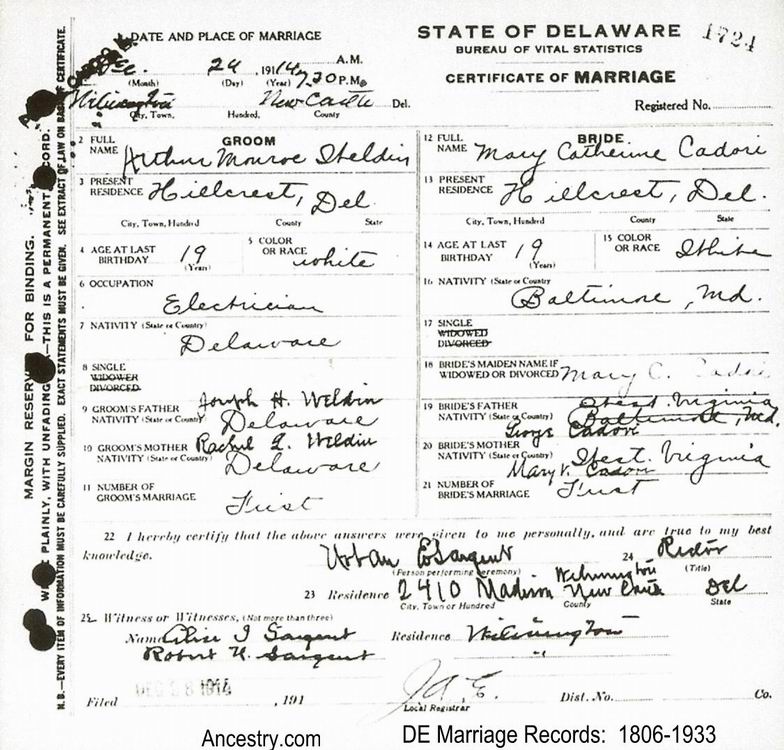 DATE AND PLACE OF MARRIAGE
STATE OF DELAWARE
1724
BUREAU OF VITAL STATISTICS
CERTIFICATE OF MARRIAGE
Registered No.
Dec. 24 , 1914, 7.30 A.M. P.M.
(Month) (Day) (Year)
Wilmington New Castle Del.
City, Town, Hundred, County
GROOM
2 FULL NAME Arthur Monroe Weldin
3 PRESENT RESIDENCE Hillcrest, Del.
City, Town, Hundred County State
4 AGE AT LAST BIRTHDAY 19 (Years)
5 COLOR OR RACE white
6 OCCUPATION Electrician
7 NATIVITY (State or Country) Delaware
8 SINGLE
WIDOWER
DIVORCED
9 GROOM'S FATHER Joseph H. Weldin
NATIVITY (State or Country) Delaware
10 GROOM'S MOTHER Rachel L. Weldin
NATIVITY (State or Country) Delaware
11 NUMBER OF GROOM'S MARRIAGE First
BRIDE
12 FULL NAME Mary Catherine Cadori
13 PRESENT RESIDENCE Hillcrest, Del.
City, Town, Hundred County State
14 AGE AT LAST BIRTHDAY 19 (Years)
15 COLOR OR RACE White
16 NATIVITY (State or Country) Baltimore, Md.
17 SINGLE
WIDOWED
DIVORCED
18 BRIDE'S MAIDEN NAME IF WIDOWED OR DIVORCED Mary C. Cadori
19 BRIDE'S FATHER West Virginia
NATIVITY (State or Country) Baltimore, Md.
George Cadori
20 BRIDE'S MOTHER
NATIVITY (State or Country) West Virginia
Mary V. Cadori
21 NUMBER OF BRIDE'S MARRIAGE First
22 I hereby certify that the above answers were given to me personally, and are true to my best
knowledge.
Urban E Sargent 24 Rector
(Person performing ceremony) (Title)
23 Residence 2410 Madison Wilmington New Castle Del
City, Town or Hundred County State
25 Witness or Witnesses, (Not more than three)
Name Alice J Sargent Residence Wilmington
Robert H. Sargent "
Filed DEC 28 1914 , 191
J.A.E.
Local Registrar
Dist. No. Co.
MARGIN RESERVED FOR BINDING.
PLAINLY, WITH UNFADING THIS IS A PERMANENT RECORD.
N. B.—EVERY ITEM OF INFORMATION MUST BE CAREFULLY SUPPLIED. EXACT STATEMENTS MUST BE GIVEN. SEE EXTRACT OF LAW ON BACK OF CERTIFICATE.
Ancestry.com
DE Marriage Records: 1806-1933